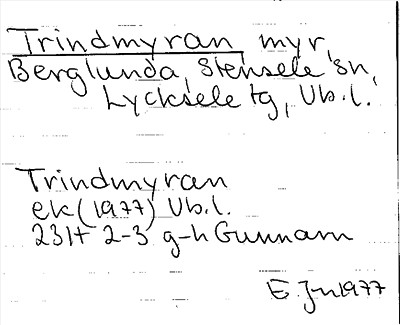 Trindmyran, myr,
Berglunda, Stensele sn,
Lycksele tg, Vb.l.
Trindmyran
ek (1977) Vb.l.
23H 2-3 g-h Gunnarn
E. 1977